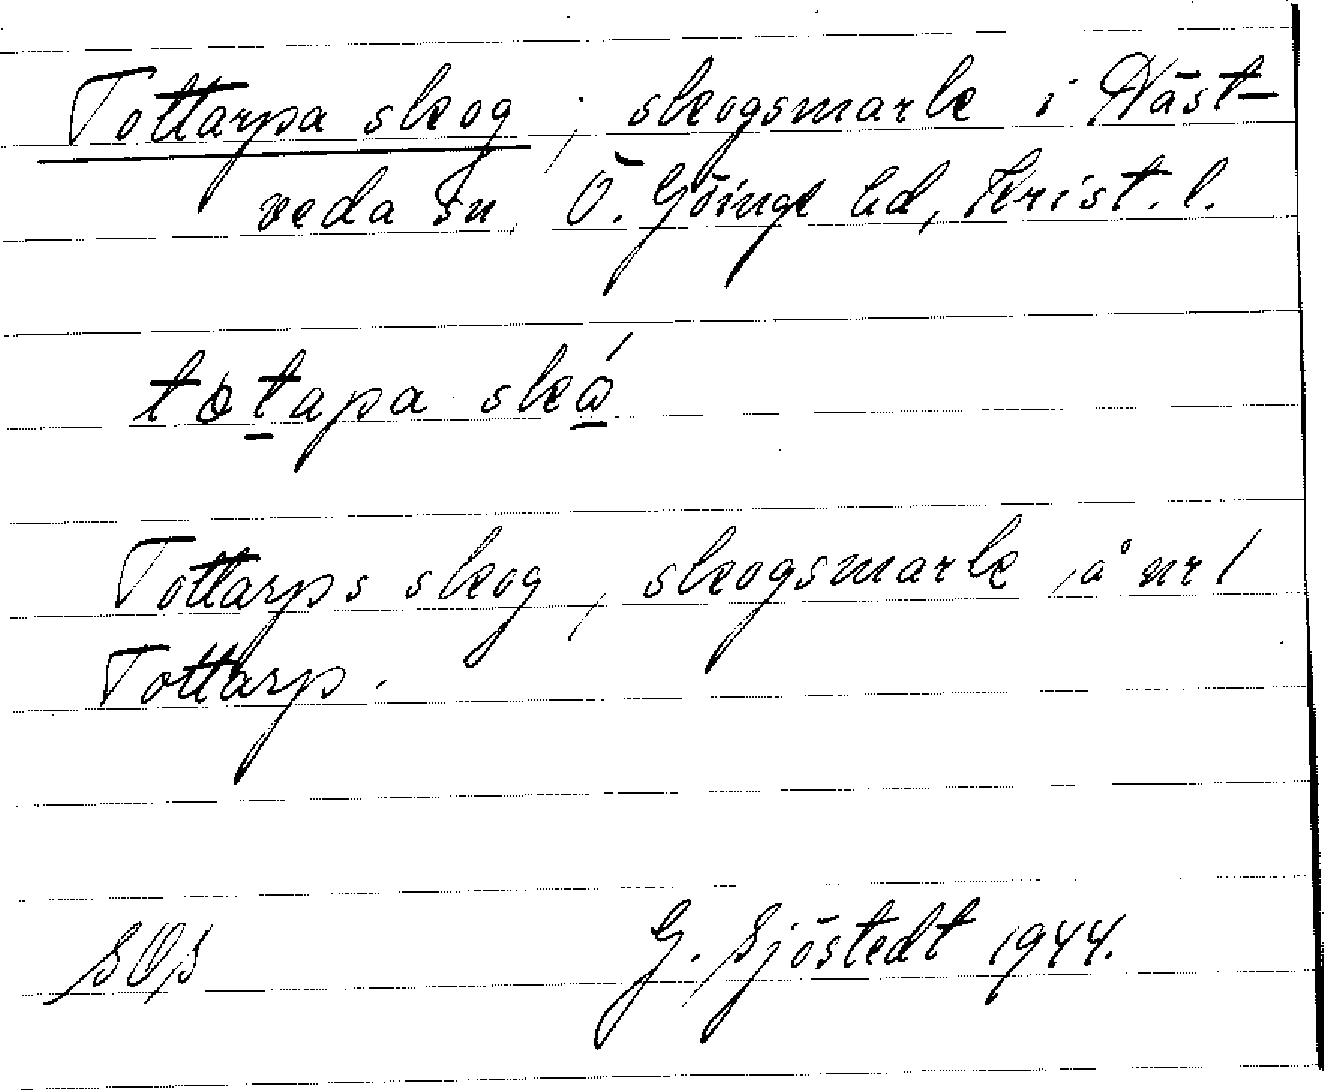 Tottarpa skog, skogsmark i Näst-
veda sn, Ö. Göinge hd, Krist. l.
totapa skå
Tottarps skog, skogsmark å nr 1
Tottarp.
SOS G. Sjöstedt 1944.